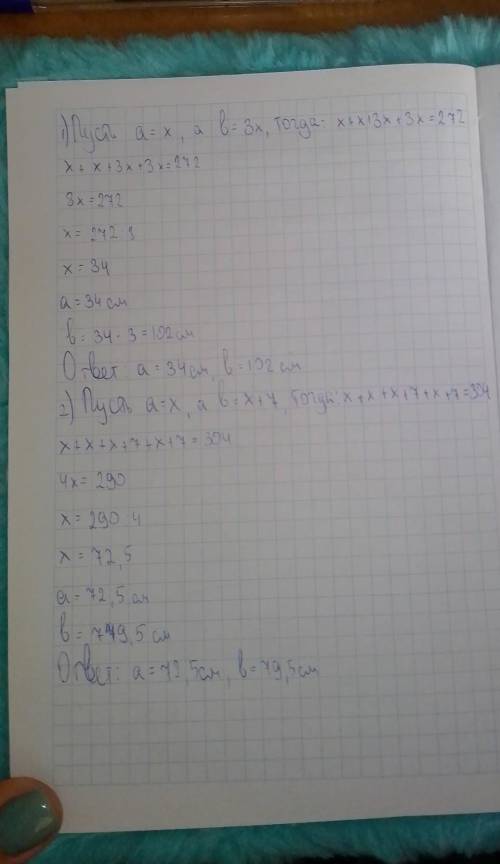 1) Пусть a = x, а b = 3x, тогда: x+x+3x+3x=272
x + x + 3x + 3x = 272
8x = 272
x = 272 8
x = 34
a = 34 см
b = 34 · 3 = 102 см
Ответ a = 34 см, b = 102 см
2) Пусть a=x, а b = x+7, тогда: x+x+x+7+x+7=304
x+x+x+7+x+7=304
4x = 290
x = 290 4
x = 72,5
a = 72,5 см
b = 79,5 см
Ответ: a = 72,5см, b = 79,5см